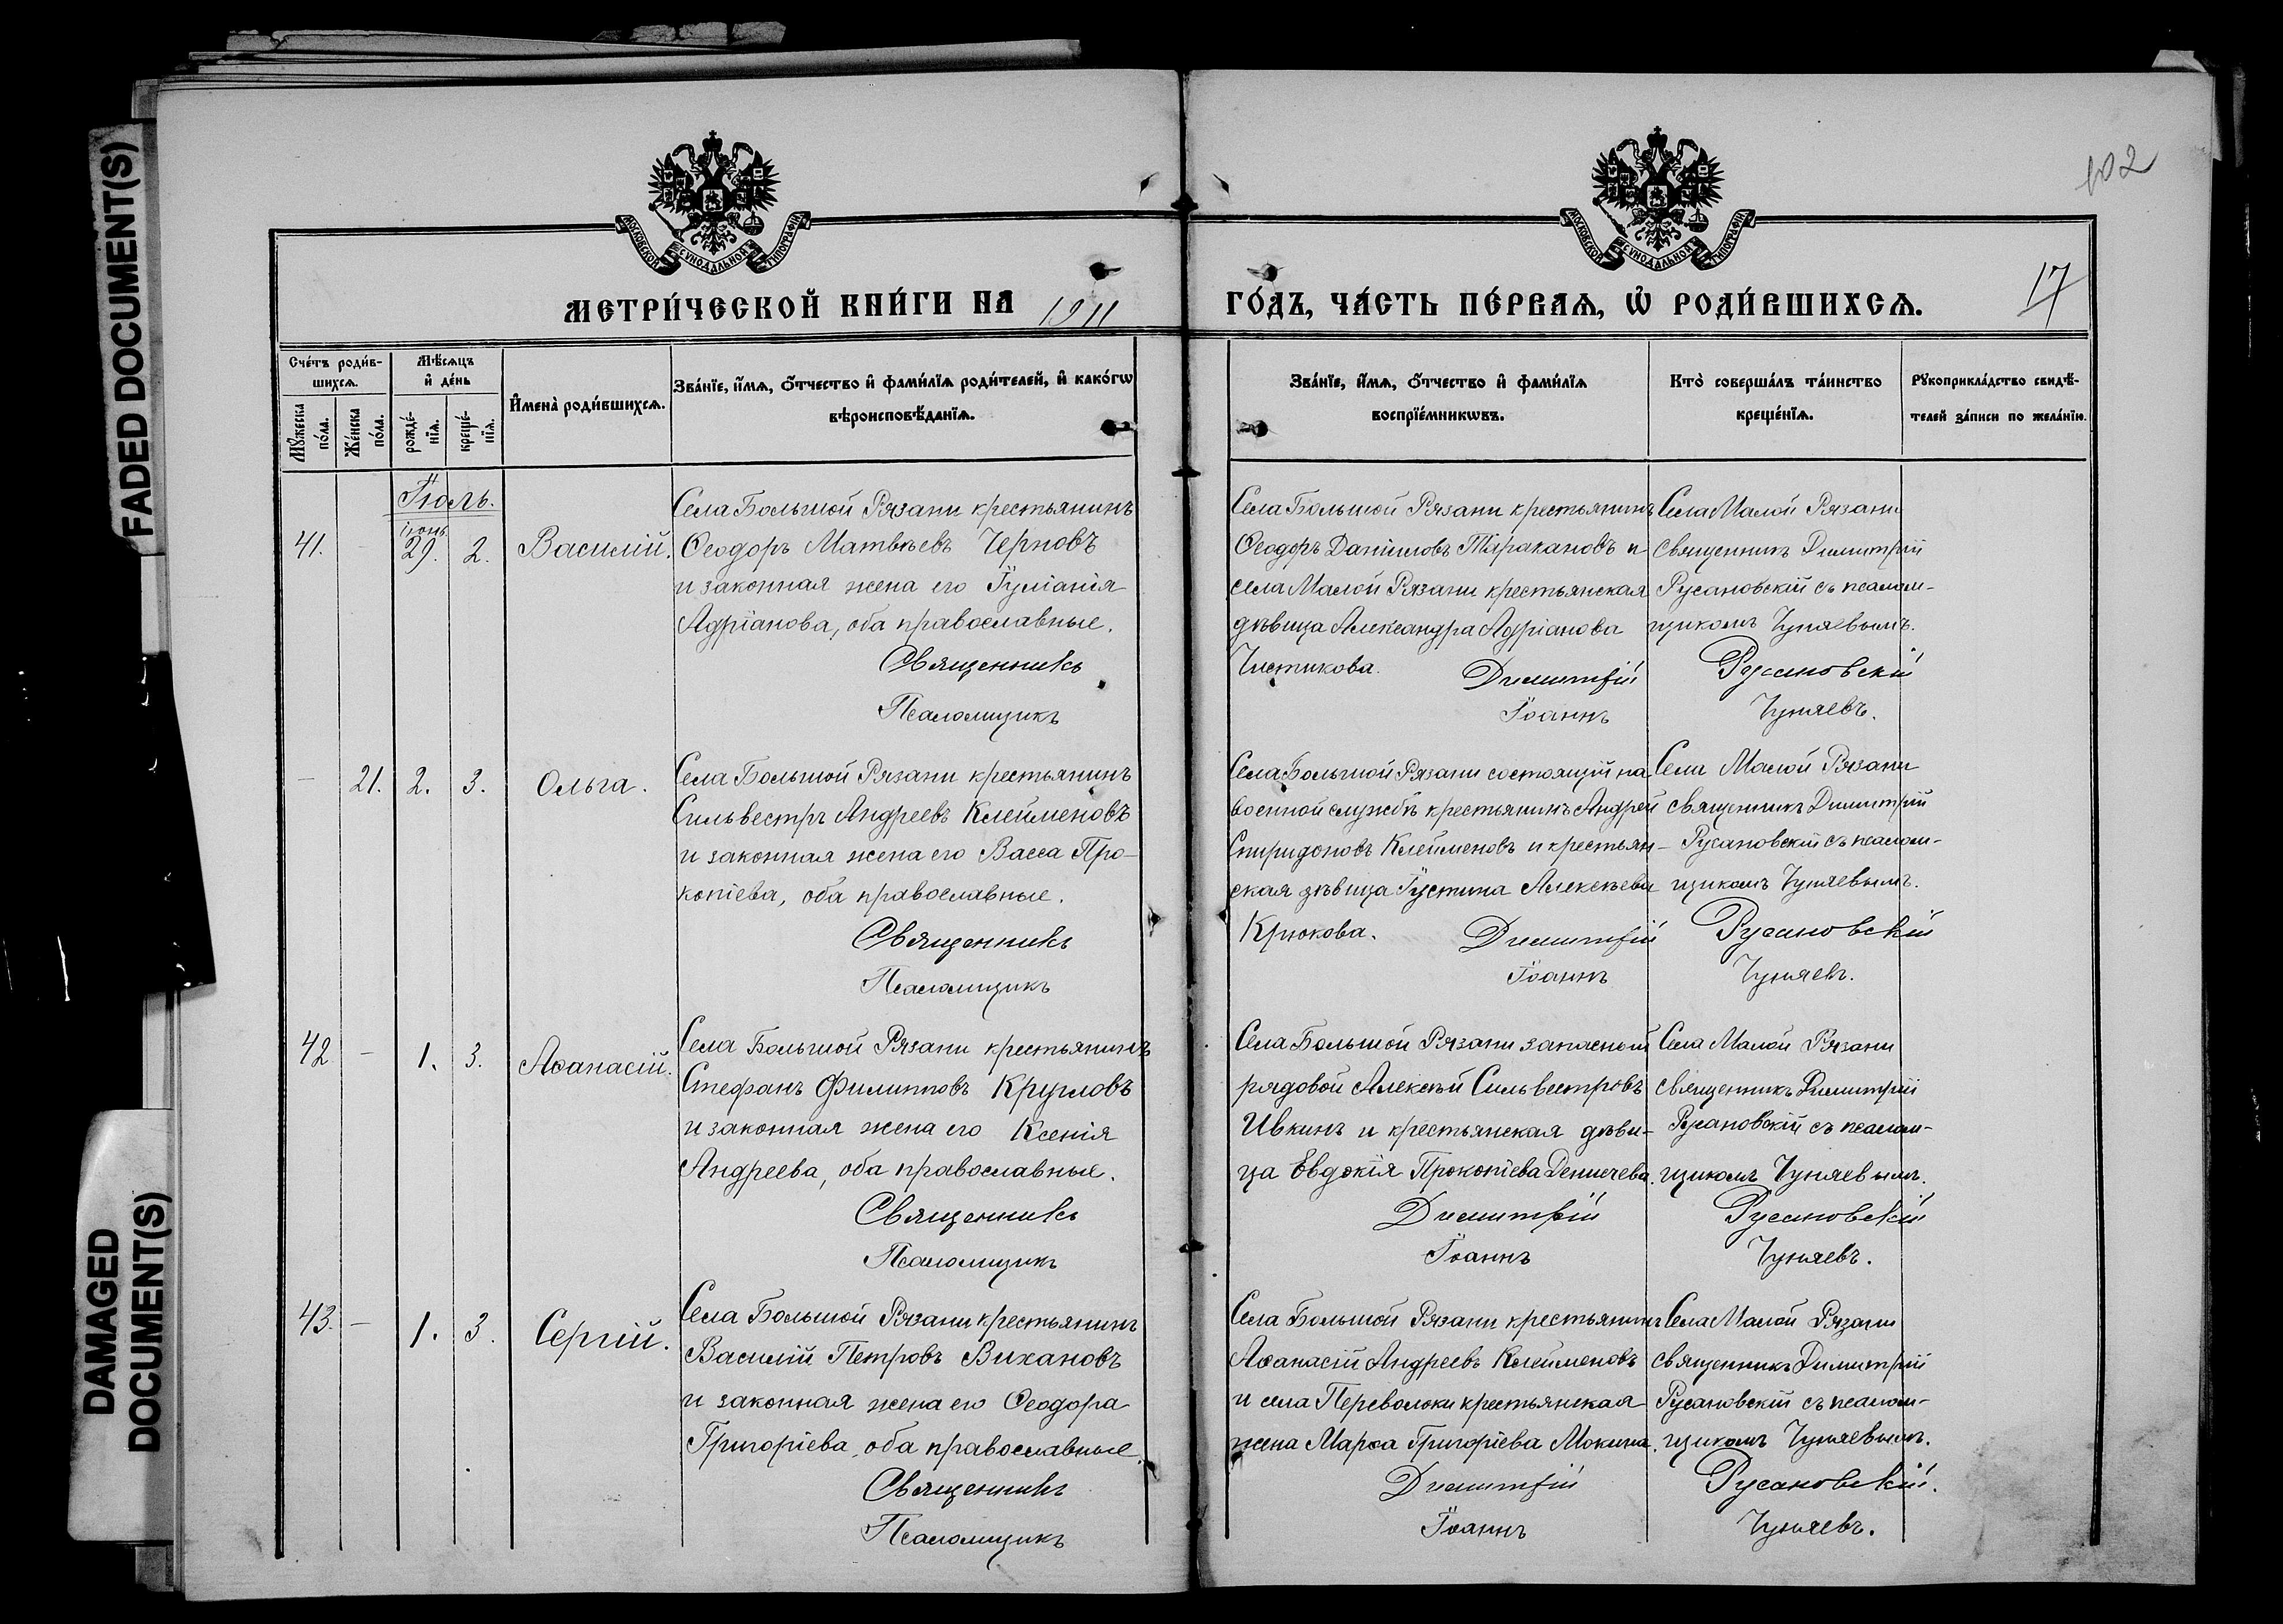 FADED DOCUMENT(S)
DAMAGED
DOCUMENT(S)
102
17
МОСКОВСКОЙ СѴНОДАЛЬНОЙ ТИПОГРАФІИ
МОСКОВСКОЙ СѴНОДАЛЬНОЙ ТИПОГРАФІИ
МЕТРИ́ЧЕСКОЙ КНИ́ГИ НА 1911
ГО́ДЪ, ЧА́СТЬ ПЕ́РВАѦ, Ѽ РОДИ́ВШИХСѦ.
Сче́тъ роди́в-
шихсѧ.
Мꙋ́жеска
по́ла.
Же́нска
по́ла.
Мѣ́сѧцъ
и҆ де́нь
рожде́-
нїѧ.
креще́-
нїѧ.
И҆мена̀ роди́вшихсѧ.
Зва́нїе, и҆́мѧ, ѻ҆́тчество и҆ фами́лїѧ роди́телей, и҆ како́гѡ
вѣроисповѣ́данїѧ.
Зва́нїе, и҆́мѧ, ѻ҆́тчество и҆ фами́лїѧ
воспрїе́мникѡвъ.
Кто̀ соверша́лъ та́инство
креще́нїѧ.
Рꙋкоприкла́дство свидѣ́-
телей за́писи по жела́нїю.
Іюль.
41. - іюнь 29. 2. Василій.
Села Большой Рязани крестьянинъ
Ѳеодоръ Матвѣевъ Черновъ
и законная жена его Іуліанія
Адріанова, оба православные.
Священникъ
Псаломщикъ
Села Большой Рязани крестьянинъ
Ѳеодоръ Даніиловъ Таракановъ и
села Малой Рязани крестьянская
дѣвица Александра Адріанова
Чистикова.
Димитрій
Іоаннъ
Села Малой Рязани
священникъ Димитрій
Русановскій съ псалом-
щикомъ Чуняевымъ.
Русановскій
Чуняевъ.
- 21. 2. 3. Ольга.
Села Большой Рязани крестьянинъ
Сильвестръ Андреевъ Клейменовъ
и законная жена его Васса Про-
копіева, оба православные.
Священникъ
Псаломщикъ
Села Большой Рязани состоящій на
военной службѣ крестьянинъ Андрей
Спиридоновъ Клейменовъ и крестьян-
ская дѣвица Іустина Алексѣева
Крюкова.
Димитрій
Іоаннъ
Села Малой Рязани
священникъ Димитрій
Русановскій съ псалом-
щикомъ Чуняевымъ.
Русановскій
Чуняевъ.
42 - 1. 3. Аѳанасій.
Села Большой Рязани крестьянинъ
Стефанъ Филипповъ Кругловъ
и законная жена его Ксенія
Андреева, оба православные.
Священникъ
Псаломщикъ
Села Большой Рязани запасный
рядовой Алексѣй Сильвестровъ
Ивкинъ и крестьянская дѣви-
ца Евдокія Прокопіева Деничева.
Димитрій
Іоаннъ
Села Малой Рязани
священникъ Димитрій
Русановскій съ псалом-
щикомъ Чуняевымъ.
Русановскій
Чуняевъ.
43. - 1. 3. Сергій.
Села Большой Рязани крестьянинъ
Василій Петровъ Вихановъ
и законная жена его Ѳеодора
Григоріева, оба православные.
Священникъ
Псаломщикъ
Села Большой Рязани крестьянинъ
Аѳанасій Андреевъ Клейменовъ
и села Переволоки крестьянская
жена Марѳа Григоріева Мокина.
Димитрій
Іоаннъ
Села Малой Рязани
священникъ Димитрій
Русановскій съ псалом-
щикомъ Чуняевымъ.
Русановскій.
Чуняевъ.